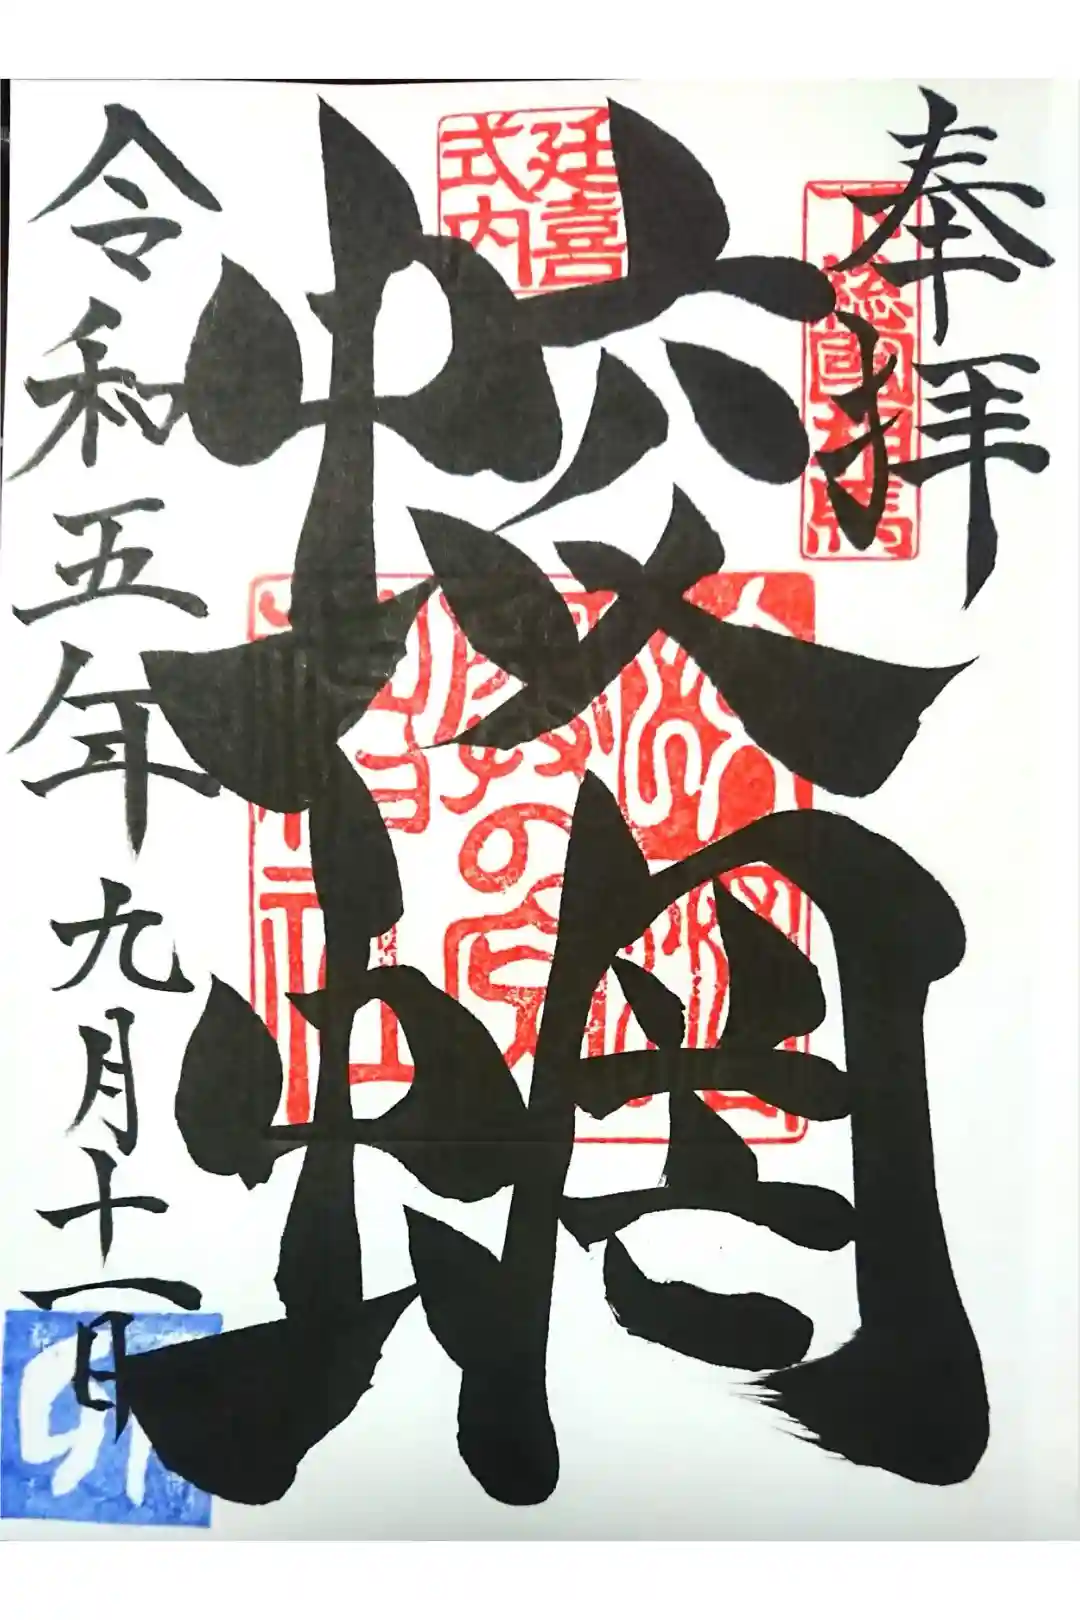 奉拝
下総國相馬
延喜
式内
蛟蝄
令和五年九月十一日
卯